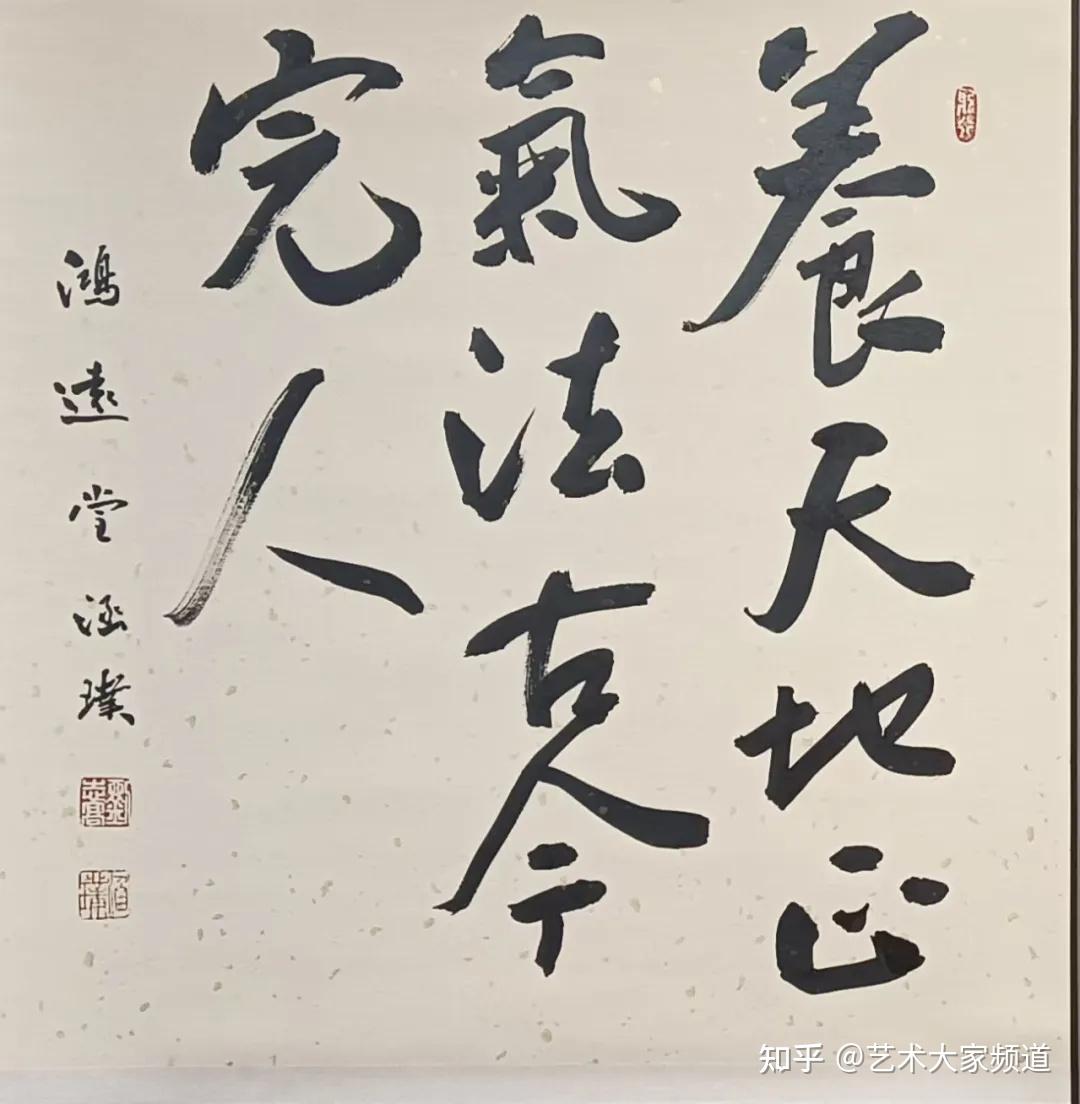 養天地正
氣法古今
完人
鴻遠堂涵璞
知乎 @艺术大家频道